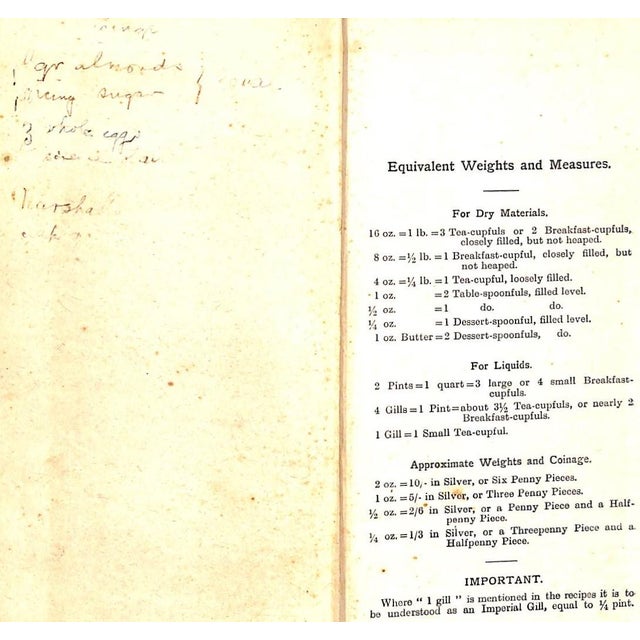 gr almonds
icing sugar
3 whole eggs
Equivalent Weights and Measures.
For Dry Materials.
16 oz. = 1 lb. = 3 Tea-cupfuls or 2 Breakfast-cupfuls,
closely filled, but not heaped.
8 oz. = ½ lb. = 1 Breakfast-cupful, closely filled, but
not heaped.
4 oz. = ¼ lb. = 1 Tea-cupful, loosely filled.
1 oz. = 2 Table-spoonfuls, filled level.
½ oz. = 1 do. do.
¼ oz. = 1 Dessert-spoonful, filled level.
1 oz. Butter = 2 Dessert-spoonfuls, do.
For Liquids.
2 Pints = 1 quart = 3 large or 4 small Breakfast-
cupfuls.
4 Gills = 1 Pint = about 3½ Tea-cupfuls, or nearly 2
Breakfast-cupfuls.
1 Gill = 1 Small Tea-cupful.
Approximate Weights and Coinage.
2 oz. = 10/- in Silver, or Six Penny Pieces.
1 oz. = 5/- in Silver, or Three Penny Pieces.
½ oz. = 2/6 in Silver, or a Penny Piece and a Half-
penny Piece.
¼ oz. = 1/3 in Silver, or a Threepenny Piece and a
Halfpenny Piece.
IMPORTANT.
Where "1 gill" is mentioned in the recipes it is to
be understood as an Imperial Gill, equal to ¼ pint.